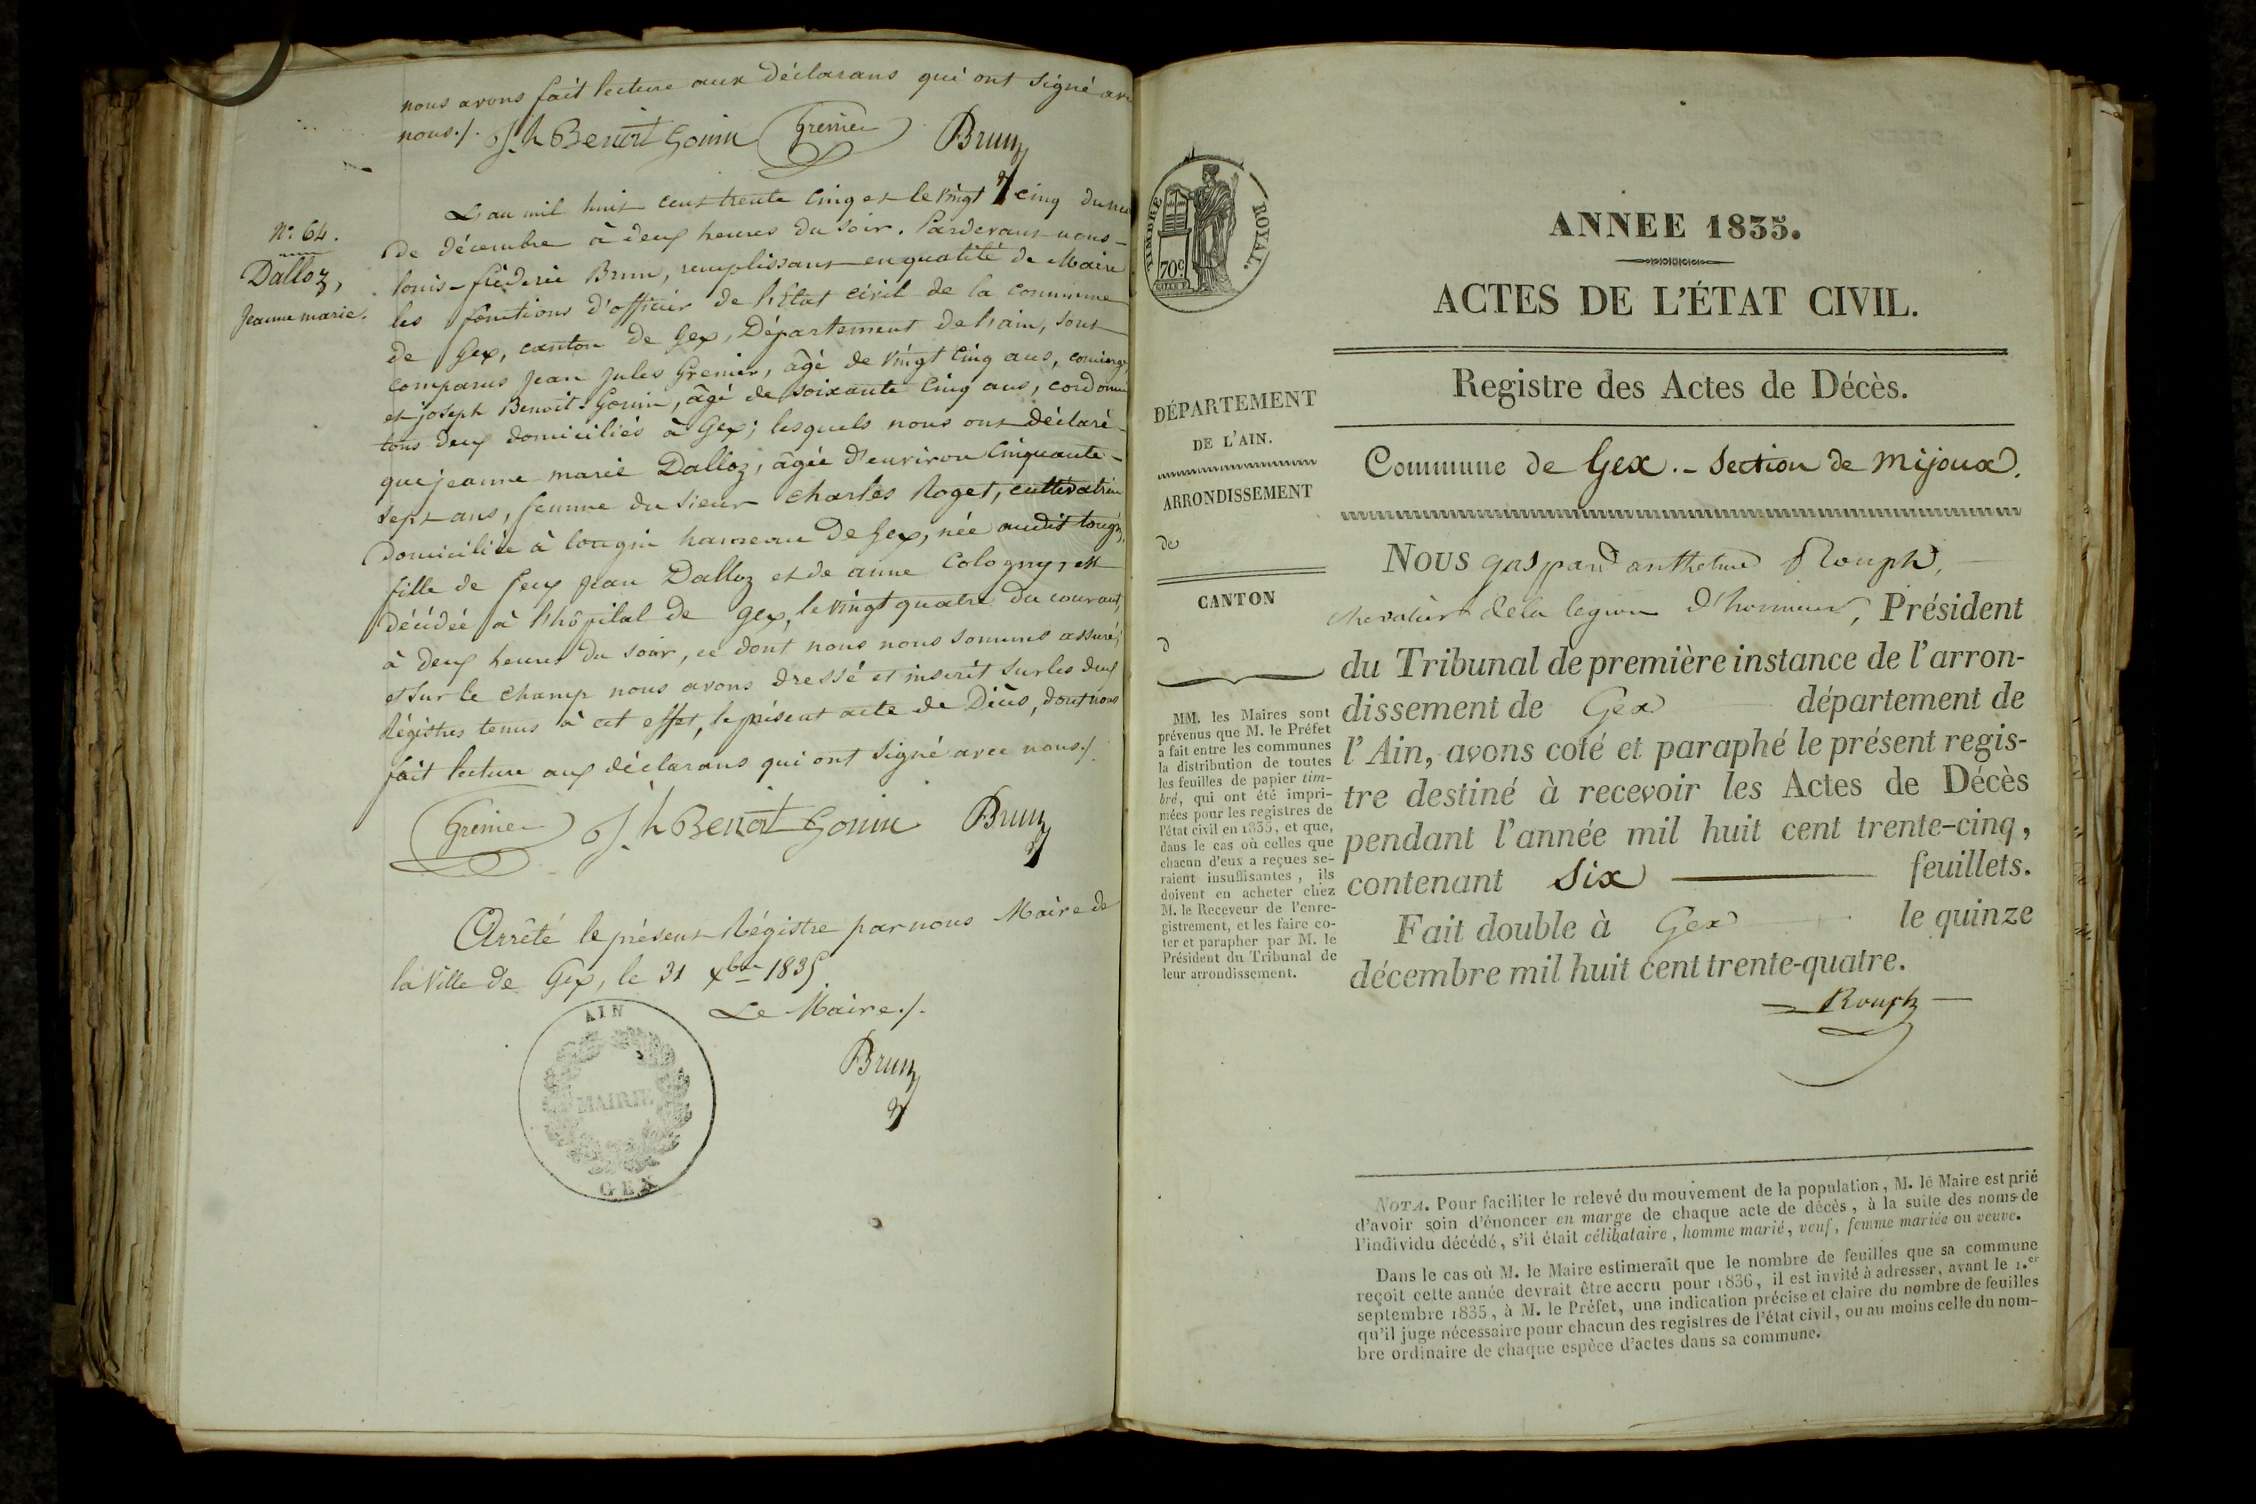 nous avons fait lecture aux déclarans qui ont signé avec
nous./. Jh Benoit Gonin Grenier Brun
N.o 64.
Dalloz,
jeanne marie.
L'an mil huit cent trente cinq et le vingt cinq du mois
de décembre à deux heures du soir. Pardevant nous
louis-fréderic Brun, remplissant en qualité de Maire
les fonctions d'officier de l'Etat civil de la commune
de Gex, canton de Gex, Département de l'ain, sont
comparus jean jules Grenier, âgé de vingt cinq ans, concierge,
et joseph Benoit-Gonin, âgé de soixante cinq ans, cordonnier
tous deux domiciliés à Gex; lesquels nous ont déclaré
que jeanne marie Dalloz, âgée d'environ cinquante-
sept ans, femme du sieur charles Roget, cultivatrice
domiciliée à tougin hameau de Gex, née audit tougin,
fille de feux jean Dalloz et de anne Cologny, est
décédée à l'hôpital de gex, le vingt quatre du courant,
à deux heures du soir, ce dont nous nous sommes assuré;
et sur le champ nous avons dressé et inscrit sur les deux
Régistres tenus à cet effet, le présent acte de Décès, dont nous
fait lecture aux déclarans qui ont signé avec nous./.
Grenier Jh Benoit Gonin Brun
Arrêté le présent Régistre par nous Maire de
la Ville de Gex, le 31 Xbre 1835
Le Maire./.
Brun
AIN
MAIRIE
GEX
TIMBRE ROYAL.
70c
ANNEE 1835.
ACTES DE L'ÉTAT CIVIL.
Registre des Actes de Décès.
Commune de Gex. - Section de Mijoux.
DÉPARTEMENT
DE L'AIN.
ARRONDISSEMENT
de
CANTON
d
MM. les Maires sont
prévenus que M. le Préfet
a fait entre les communes
la distribution de toutes
les feuilles de papier tim-
bré, qui ont été impri-
mées pour les registres de
l'état civil en 1835, et que,
dans le cas où celles que
chacun d'eux a reçues se-
raient insuffisantes, ils
doivent en acheter chez
M. le Receveur de l'enre-
gistrement, et les faire co-
ter et parapher par M. le
Président du Tribunal de
leur arrondissement.
NOUS gaspard anthelme Rouph,
chevalier de la legion d'honneur, Président
du Tribunal de première instance de l'arron-
dissement de Gex département de
l'Ain, avons coté et paraphé le présent regis-
tre destiné à recevoir les Actes de Décès
pendant l'année mil huit cent trente-cinq,
contenant Six feuillets.
Fait double à Gex le quinze
décembre mil huit cent trente-quatre.
Rouph
NOTA. Pour faciliter le relevé du mouvement de la population, M. le Maire est prié
d'avoir soin d'énoncer en marge de chaque acte de décès, à la suite des noms de
l'individu décédé, s'il était célibataire, homme marié, veuf, femme mariée ou veuve.
Dans le cas où M. le Maire estimerait que le nombre de feuilles que sa commune
reçoit cette année devrait être accru pour 1836, il est invité à adresser, avant le 1.er
septembre 1835, à M. le Préfet, une indication précise et claire du nombre de feuilles
qu'il juge nécessaire pour chacun des registres de l'état civil, ou au moins celle du nom-
bre ordinaire de chaque espèce d'actes dans sa commune.